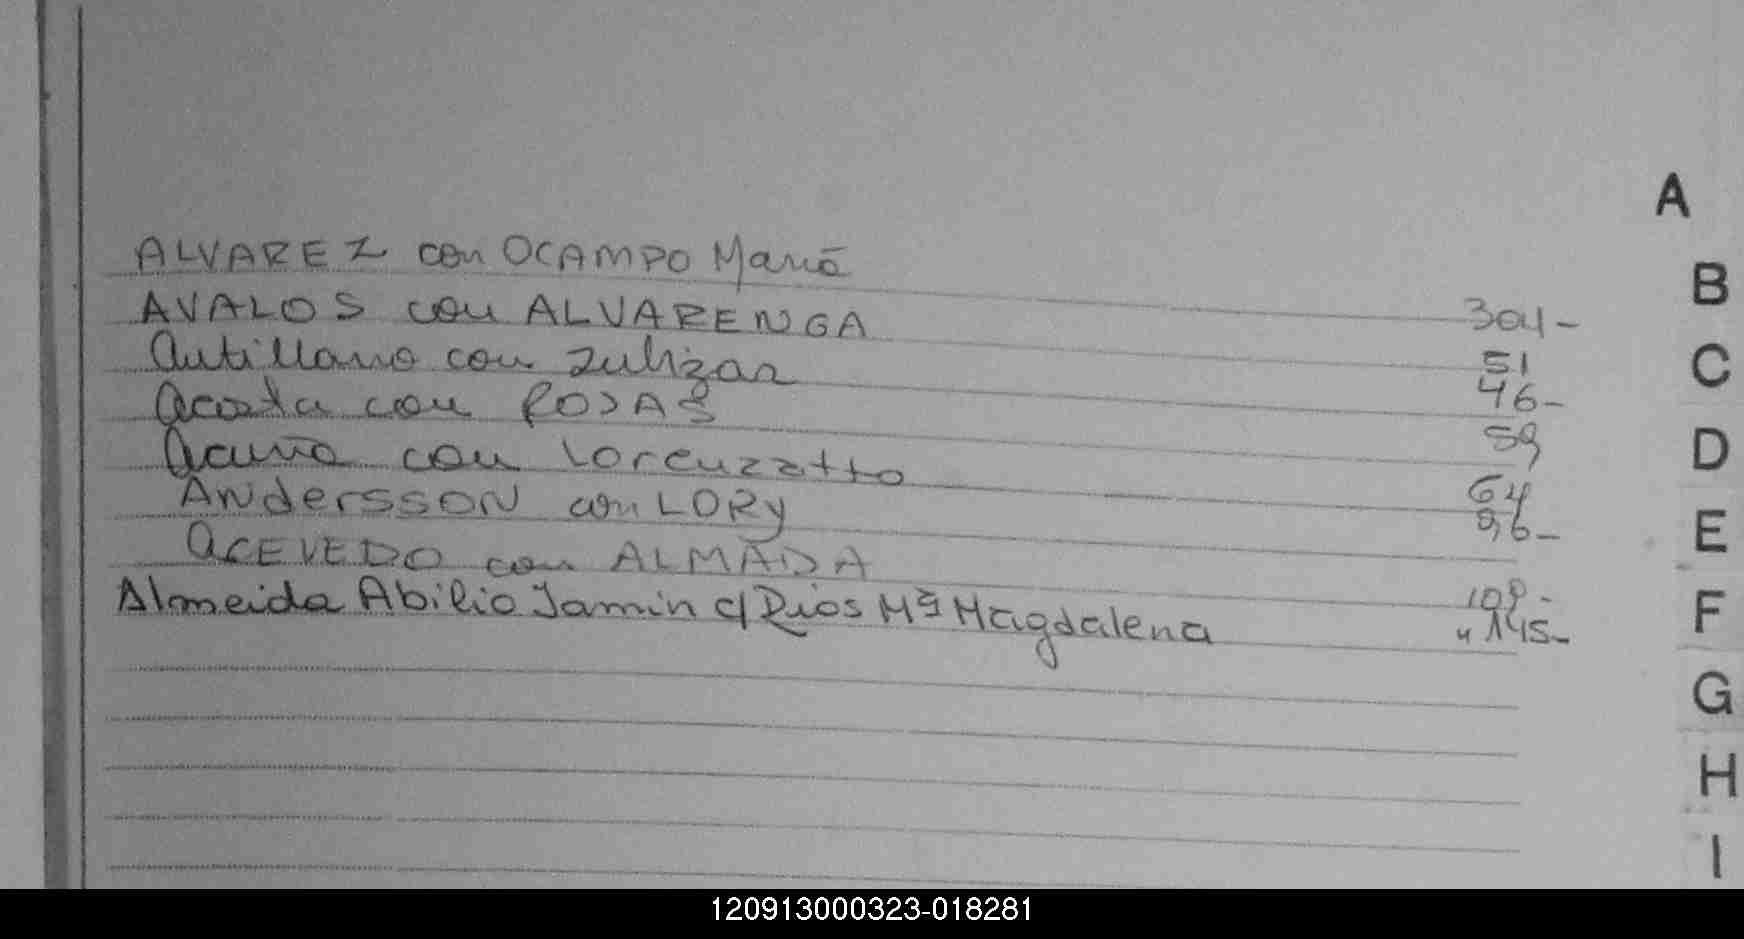 A
ALVAREZ con OCAMPO Maria 304-
AVALOS con ALVARENGA 51
Antillano con Zulizar 46-
Acosta con ROJAS 59
Acuña con Lorenzatto 64
ANderssON con LORy 96-
ACEVEDO con ALMADA 109-
Almeida Abilio Jamin c/ Rios Mª Magdalena " 145-
B
C
D
E
F
G
H
I
120913000323-018281